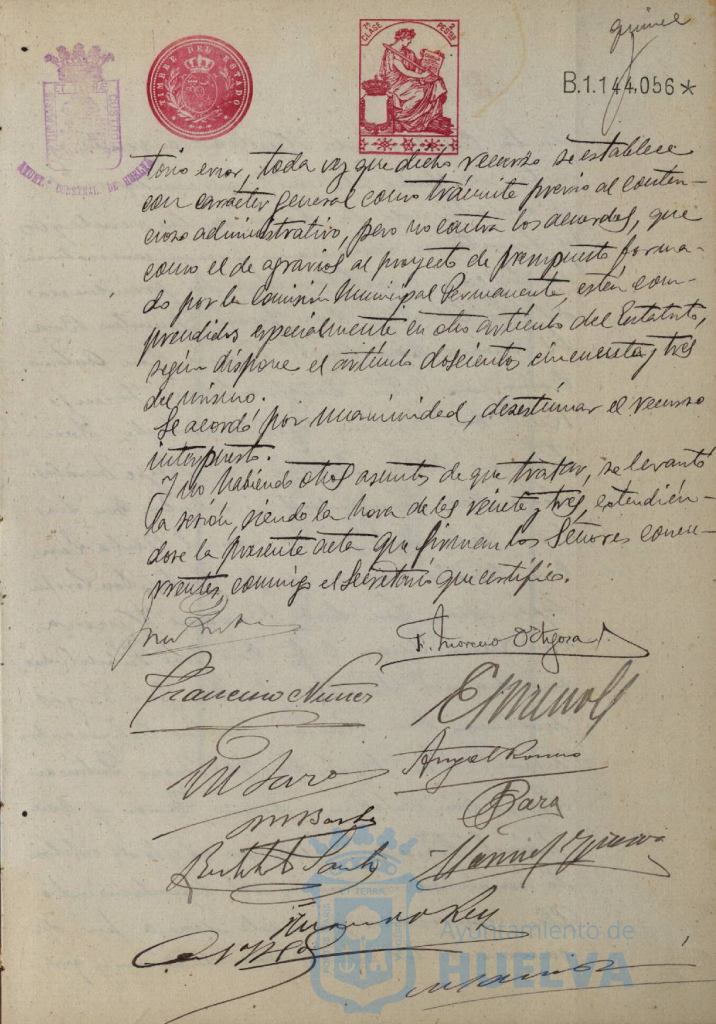 quince
TIMBRE DEL ESTADO
7ª CLASE 2 PESETAS
B.1.144,056*
AYUNT.º CONSTNAL. DE HUELVA
torio error, toda vez que dicho recurso se establece
con carácter general como trámite previo al conten-
cioso administrativo, pero no contra los acuerdos, que
como el de agravios al proyecto de presupuesto forma-
do por la Comisión Municipal Permanente, están com-
prendidos especialmente en otro artículo del Estatuto,
según dispone el artículo doscientos cincuenta y tres
del mismo.
Se acordó por unanimidad, desestimar el recurso
interpuesto.
Y no habiendo otros asuntos de que tratar, se levantó
la sesión, siendo la hora de las veinte y tres, extendién-
dose la presente acta que firman los Señores concu-
rrentes, conmigo el Secretario que certifico.
F. Moreno Ortigosa
Francisco Núñez
Angel Romero
M Barba
Manuel
Rey
Ayuntamiento de
HUELVA